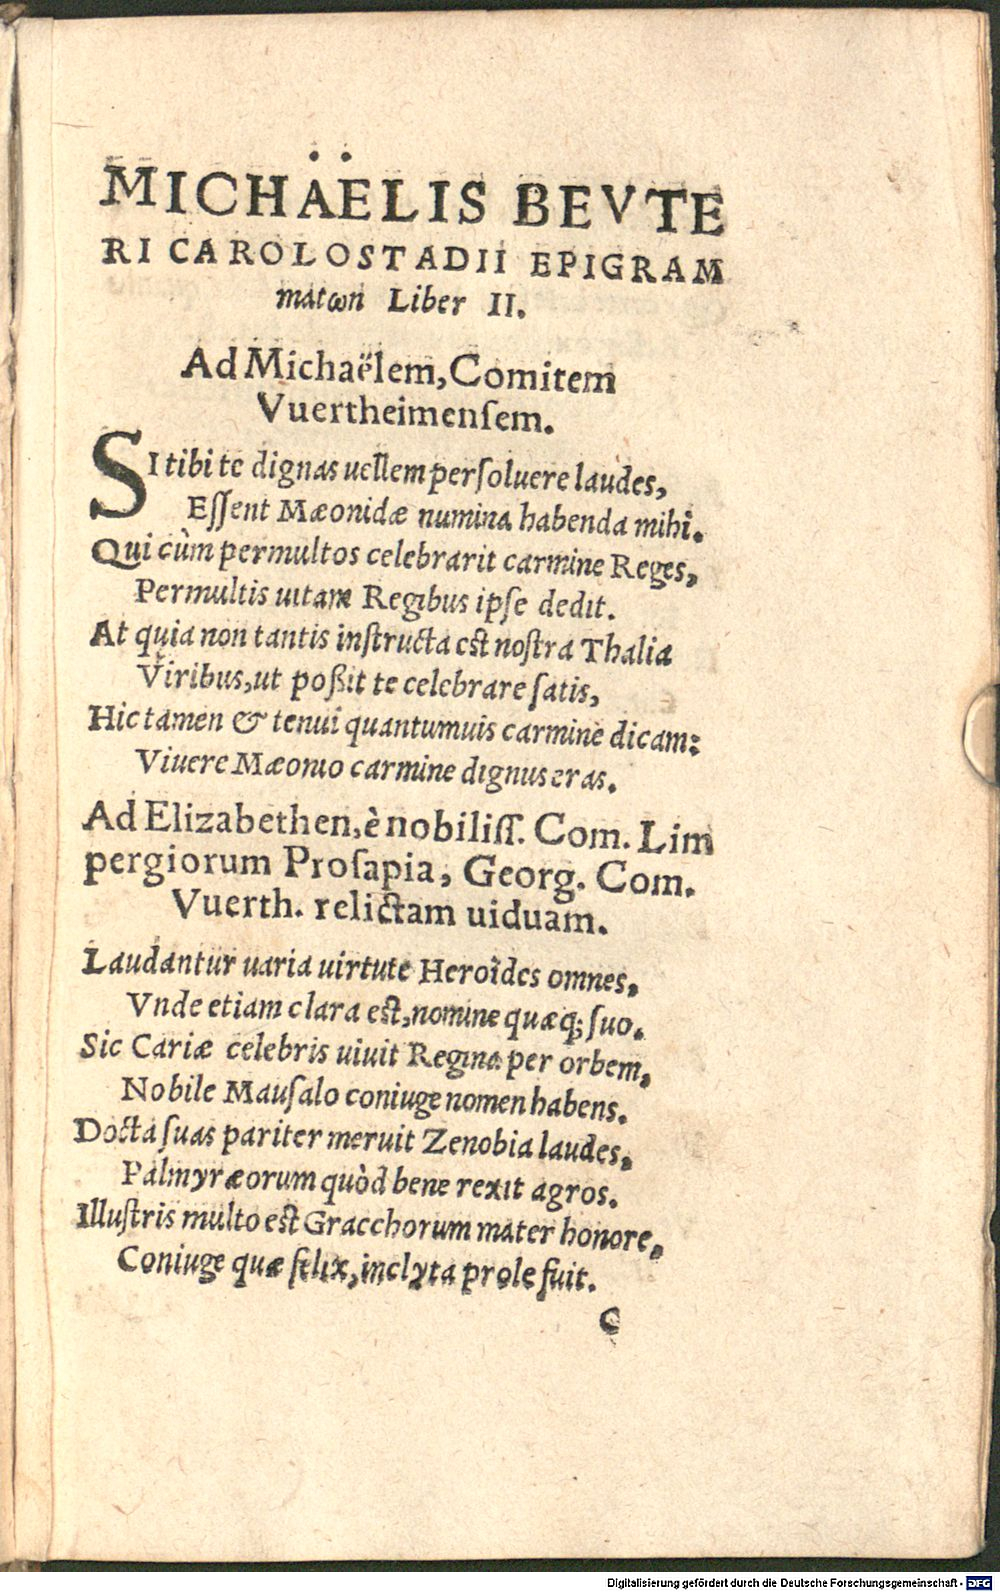 MICHAËLIS BEVTE
RI CAROLOSTADII EPIGRAM
matωn Liber II.
Ad Michaëlem, Comitem
Vuertheimenſem.
SI tibi te dignas uellem perſoluere laudes,
Eſſent Mæonidæ numina habenda mihi.
Qui cùm permultos celebrarit carmine Reges,
Permultis uitam Regibus ipſe dedit.
At quia non tantis inſtructa est noſtra Thalia
Viribus, ut poßit te celebrare ſatis,
Hic tamen & tenui quantumuis carmine dicam:
Viuere Mæonio carmine dignus eras.
Ad Elizabethen, è nobiliſſ. Com. Lim
pergiorum Proſapia, Georg. Com.
Vuerth. relictam uiduam.
Laudantur uaria uirtute Heroïdes omnes,
Vnde etiam clara est, nomine quæq; ſuo.
Sic Cariæ celebris uiuit Regina per orbem,
Nobile Mauſalo coniuge nomen habens.
Docta ſuas pariter meruit Zenobia laudes,
Palmyræorum quòd bene rexit agros.
Illuſtris multo est Gracchorum mater honore,
Coniuge quæ felix, inclyta prole fuit.
C
Digitalisierung gefördert durch die Deutsche Forschungsgemeinschaft - DFG